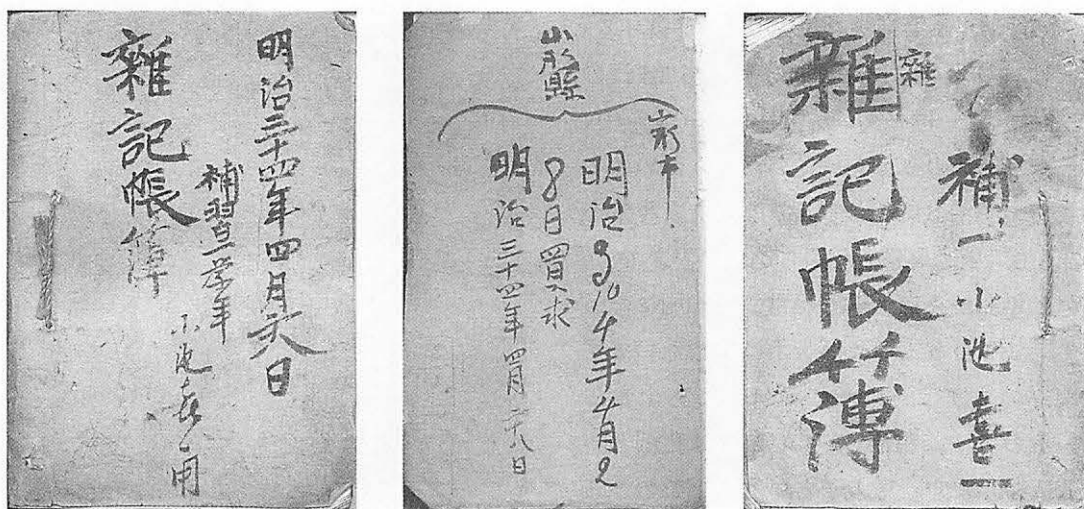 明治三十四年四月六日
補習一学年
雜記帳簿
小池喜一用
山形縣
山形市
明治3104年4月2
8日買入求
明治三十四年四月六日
補一 小池喜一
雜
雜記帳簿